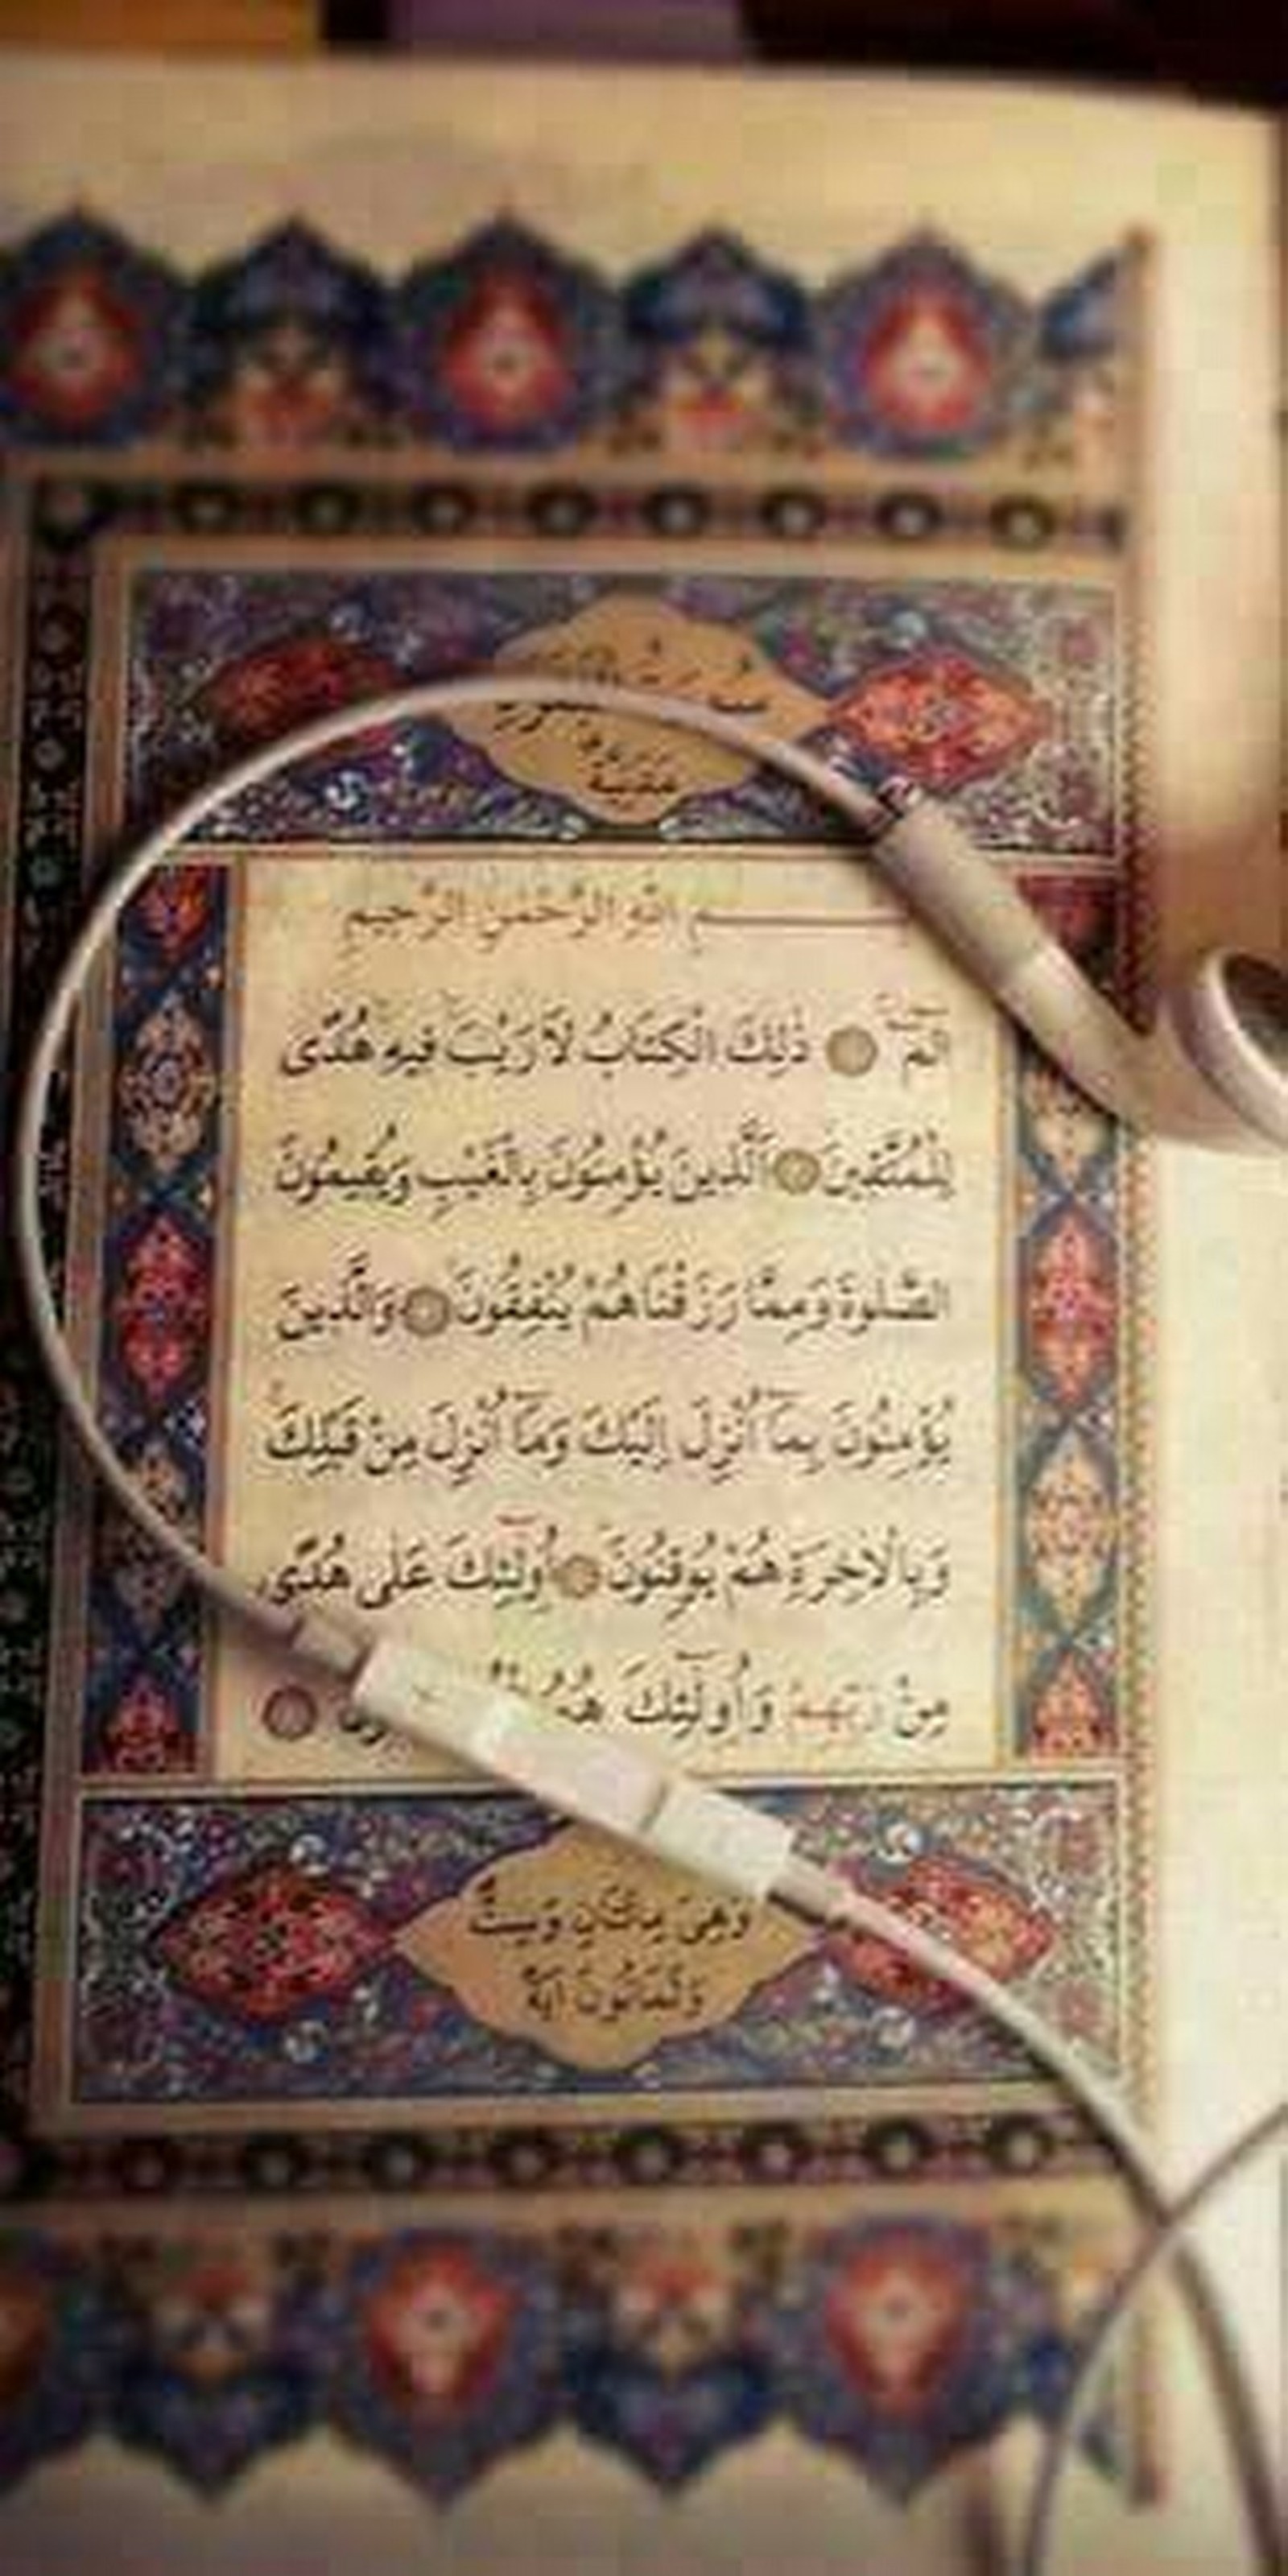 سُورَةُ الْبَقَرَةِ
مَدَنِيَّة
ـمِ اللهِ الرَّحْمٰنِ الرَّحِيمِ
الٓمٓ ذٰلِكَ الْكِتَابُ لَا رَيْبَ فِيهِ هُدًى
لِلْمُتَّقِينَ اَلَّذِينَ يُؤْمِنُونَ بِالْغَيْبِ وَيُقِيمُونَ
الصَّلٰوةَ وَمِمَّا رَزَقْنَاهُمْ يُنْفِقُونَ وَالَّذِينَ
يُؤْمِنُونَ بِمَٓا اُنْزِلَ اِلَيْكَ وَمَٓا اُنْزِلَ مِنْ قَبْلِكَ
وَبِالْاٰخِرَةِ هُمْ يُوقِنُونَ اُو۬لٰٓئِكَ عَلٰى هُدًى
مِنْ رَبِّهِمْ وَاُو۬لٰٓئِكَ هُمُ
وَهِيَ مِائَتَانِ وَسِتٌّ
وَثَمَانُونَ اٰيَةً